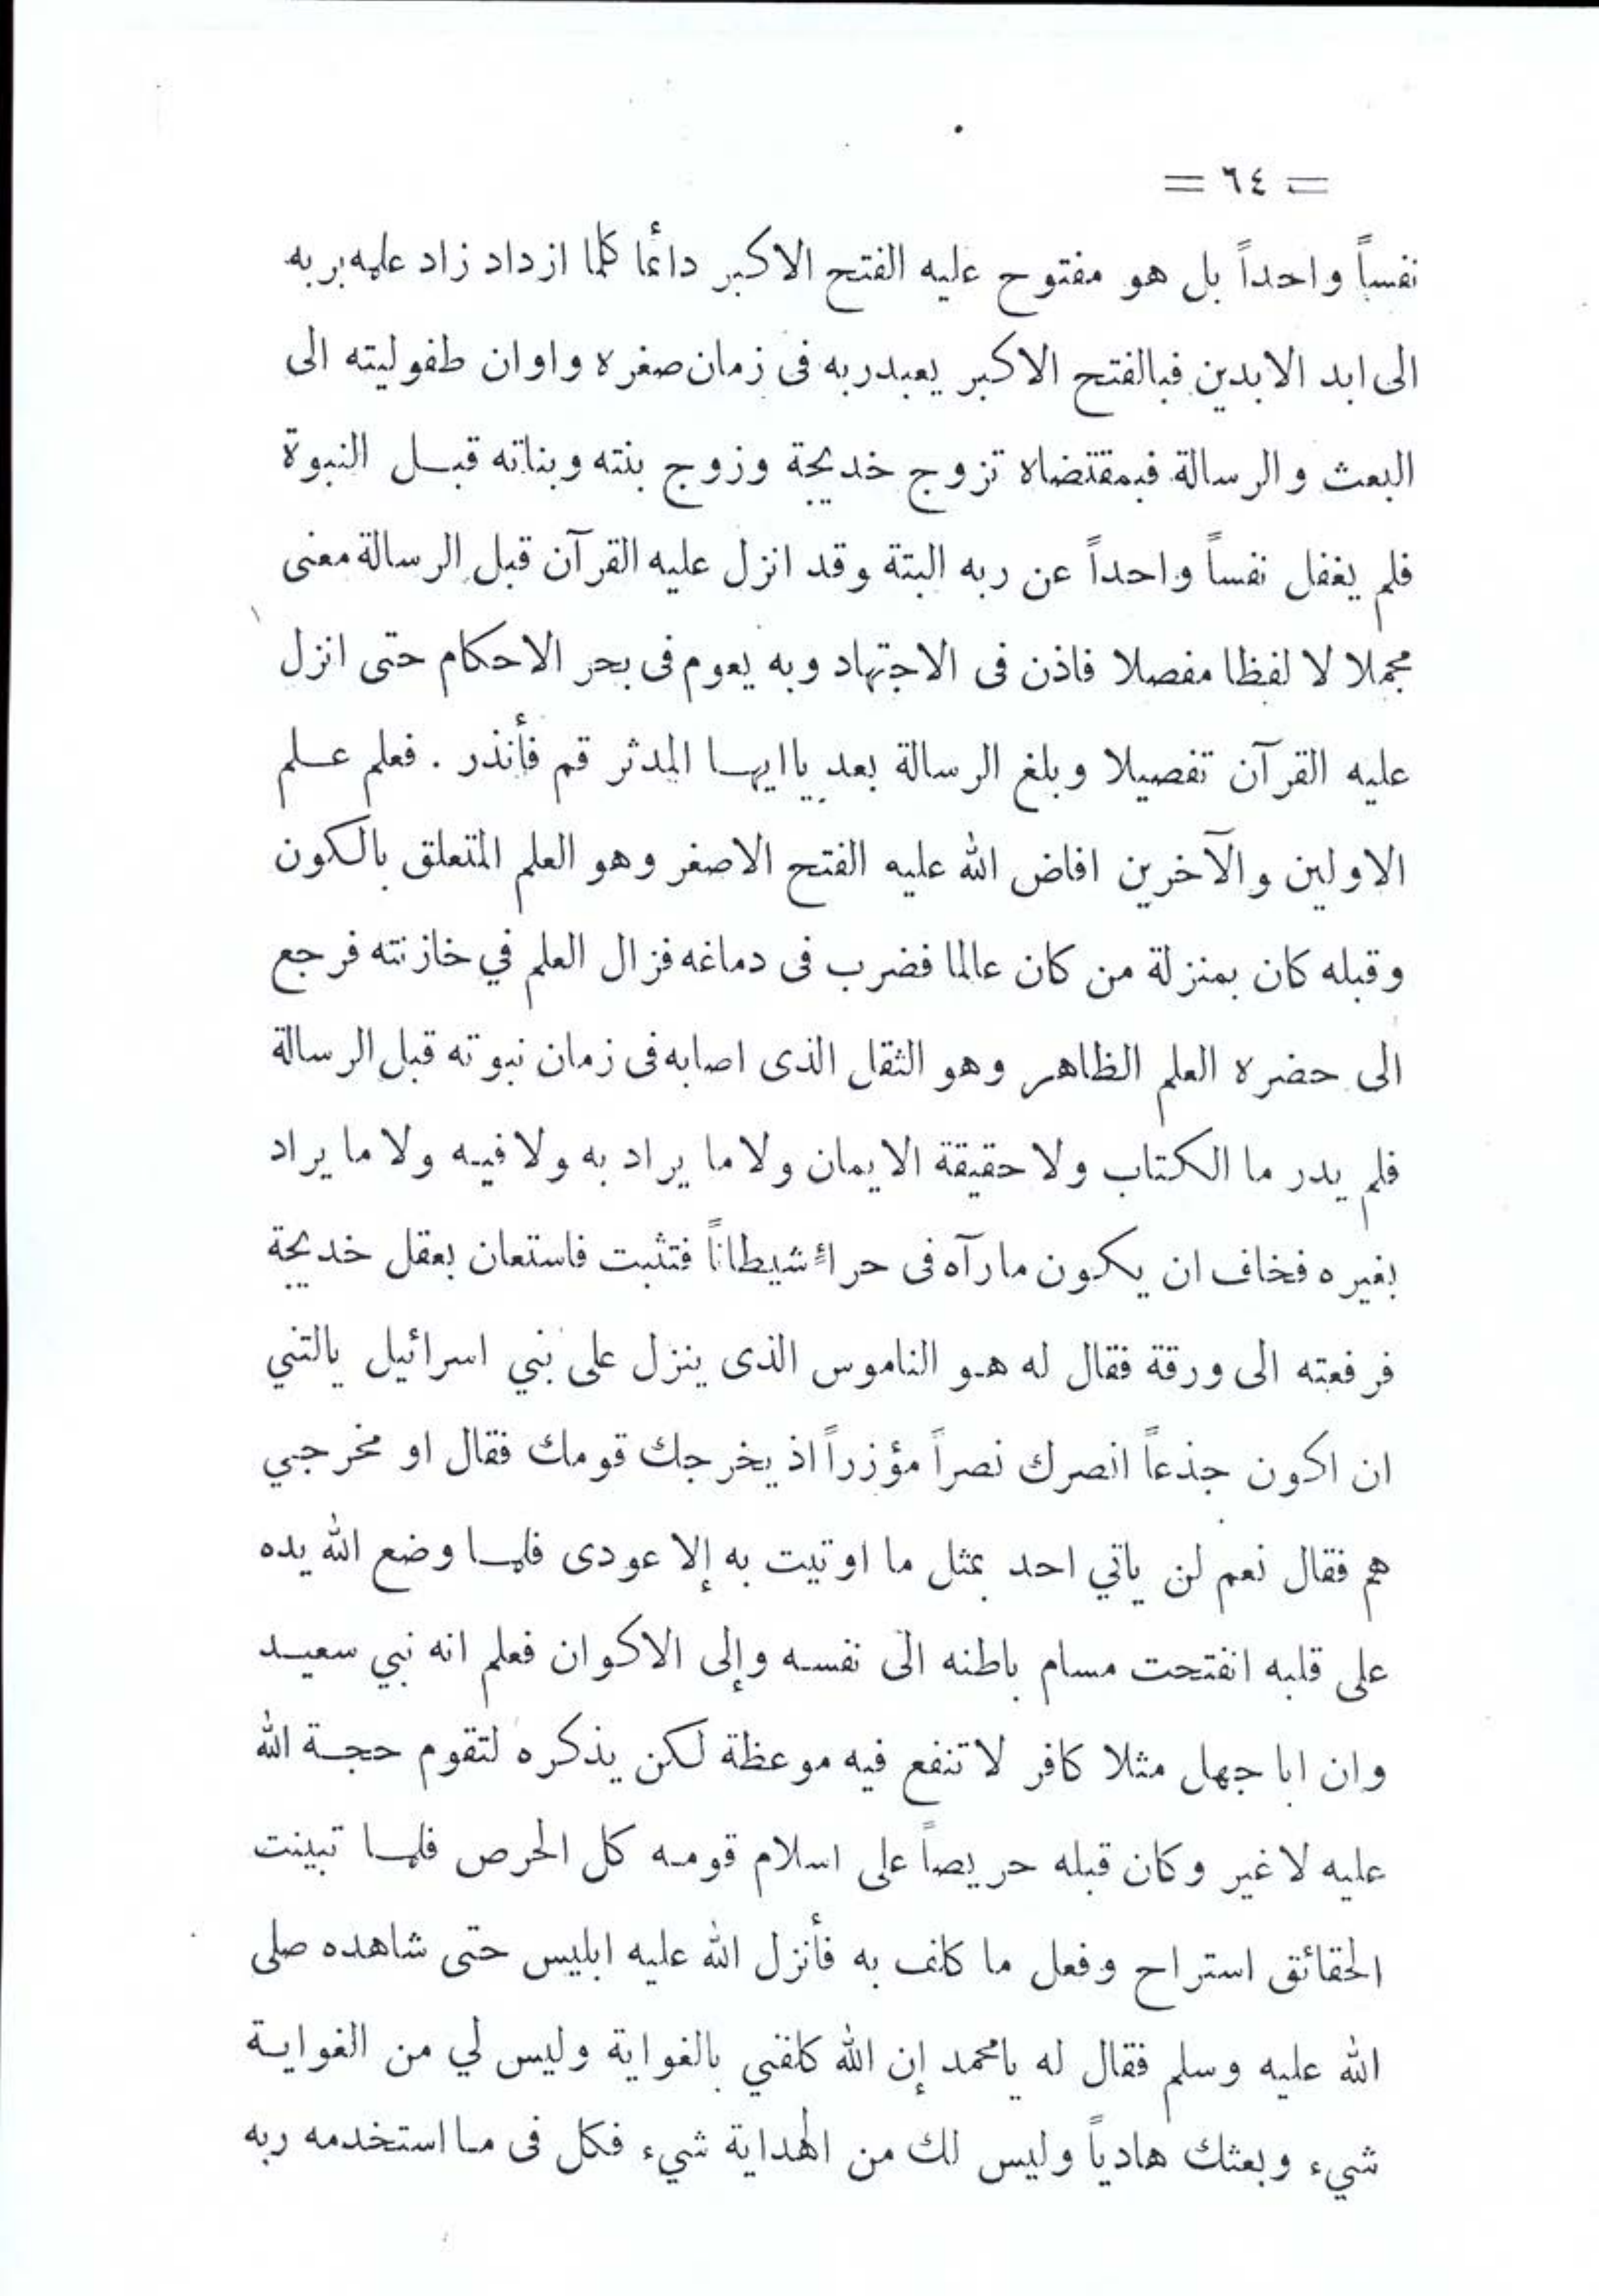 = ٦٤ =
نفساً واحداً بل هو مفتوح عليه الفتح الاكبر دائما كلما ازداد زاد علمه بربه
الى ابد الابدين فبالفتح الاكبر يعبد ربه فى زمان صغره واوان طفوليته الى
البعث والرسالة فبمقتضاه تزوج خديجة وزوج بنته وبناته قبل النبوة
فلم يغفل نفساً واحداً عن ربه البتة وقد انزل عليه القرآن قبل الرسالة معنى
مجملا لا لفظا مفصلا فاذن فى الاجتهاد وبه يعوم فى بحر الاحكام حتى انزل
عليه القرآن تفصيلا وبلغ الرسالة بعد ياايها المدثر قم فأنذر . فعلم علم
الاولين والآخرين افاض الله عليه الفتح الاصغر وهو العلم المتعلق بالكون
وقبله كان بمنزلة من كان عالما فضرب فى دماغه فزال العلم في خازنته فرجع
الى حضره العلم الظاهر وهو الثقل الذى اصابه فى زمان نبوته قبل الرسالة
فلم يدر ما الكتاب ولا حقيقة الايمان ولا ما يراد به ولا فيه ولا ما يراد
بغيره فخاف ان يكون مارآه فى حراءٍ شيطاناً فتثبت فاستعان بعقل خديجة
فرفعته الى ورقة فقال له هو الناموس الذى ينزل على بني اسرائيل يالتني
ان اكون جذعاً انصرك نصراً مؤزراً اذ يخرجك قومك فقال او مخرجي
هم فقال نعم لن ياتي احد بمثل ما اوتيت به إلا عودى فلما وضع الله يده
على قلبه انفتحت مسام باطنه الى نفسه وإلى الاكوان فعلم انه نبي سعيد
وان ابا جهل مثلا كافر لا تنفع فيه موعظة لكن يذكره لتقوم حجة الله
عليه لا غير وكان قبله حريصاً على اسلام قومه كل الحرص فلما تبينت
الحقائق استراح وفعل ما كلف به فأنزل الله عليه ابليس حتى شاهده صلى
الله عليه وسلم فقال له يامحمد إن الله كلفني بالغواية وليس لي من الغواية
شيء وبعثك هادياً وليس لك من الهداية شيء فكل فى ما استخدمه ربه